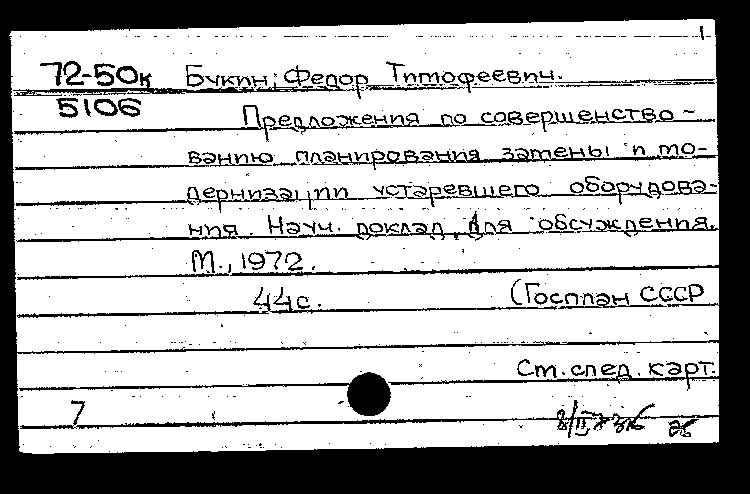 1
72-50к Букин, Федор Тимофеевич.
5106
Предложения по совершенство-
ванию планирования замены и мо-
дернизации устаревшего оборудова-
ния. Науч. доклад для обсуждения.
М., 1972.
44с. (Госплан СССР
См. след. карт.
7